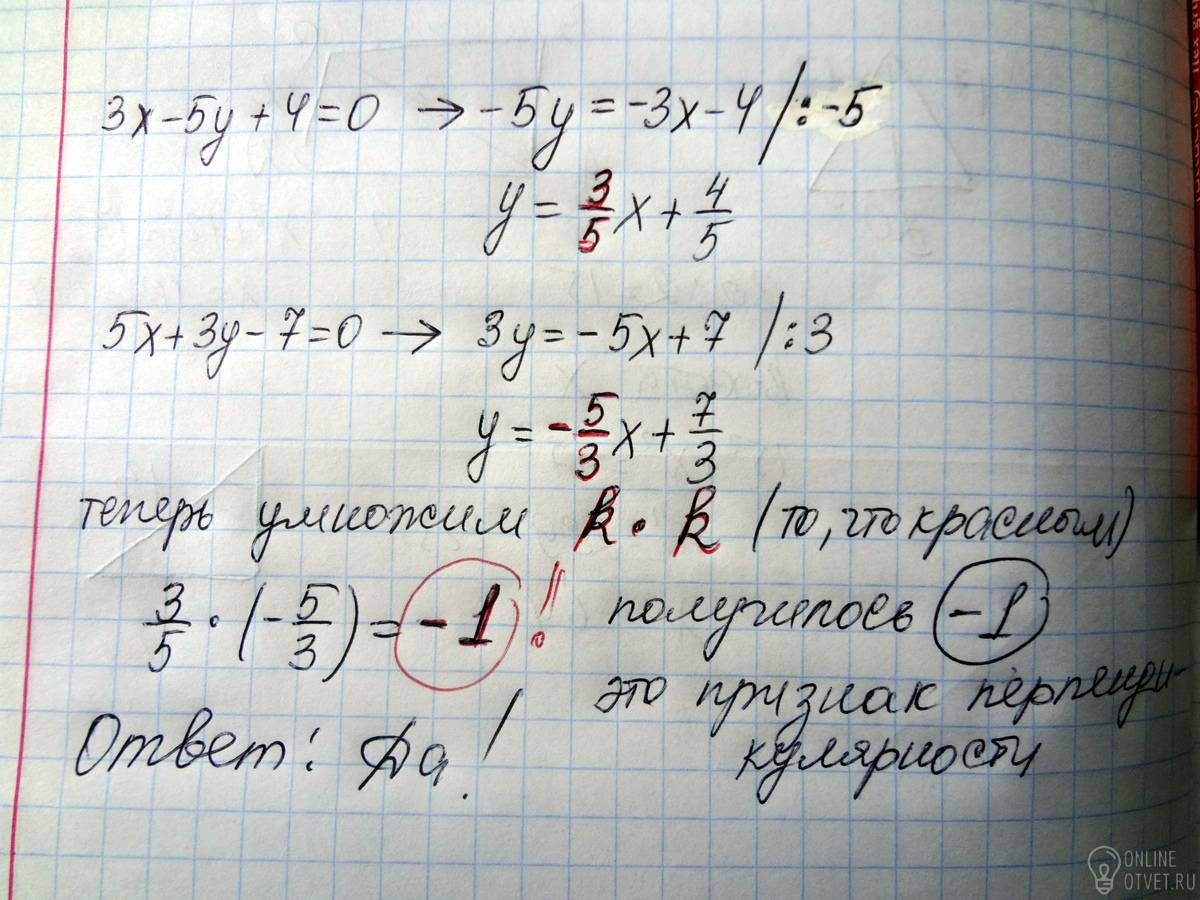 3x-5y+4=0 → -5y=-3x-4 /:-5
y=3/5x+4/5
5x+3y-7=0 → 3y=-5x+7 /:3
y=-5/3x+7/3
теперь умножим k·k (то, что красным)
3/5·(-5/3)=-1! получилось -1
это признак перпенди-
кулярности
Ответ: Да!
ONLINE
OTVET.RU